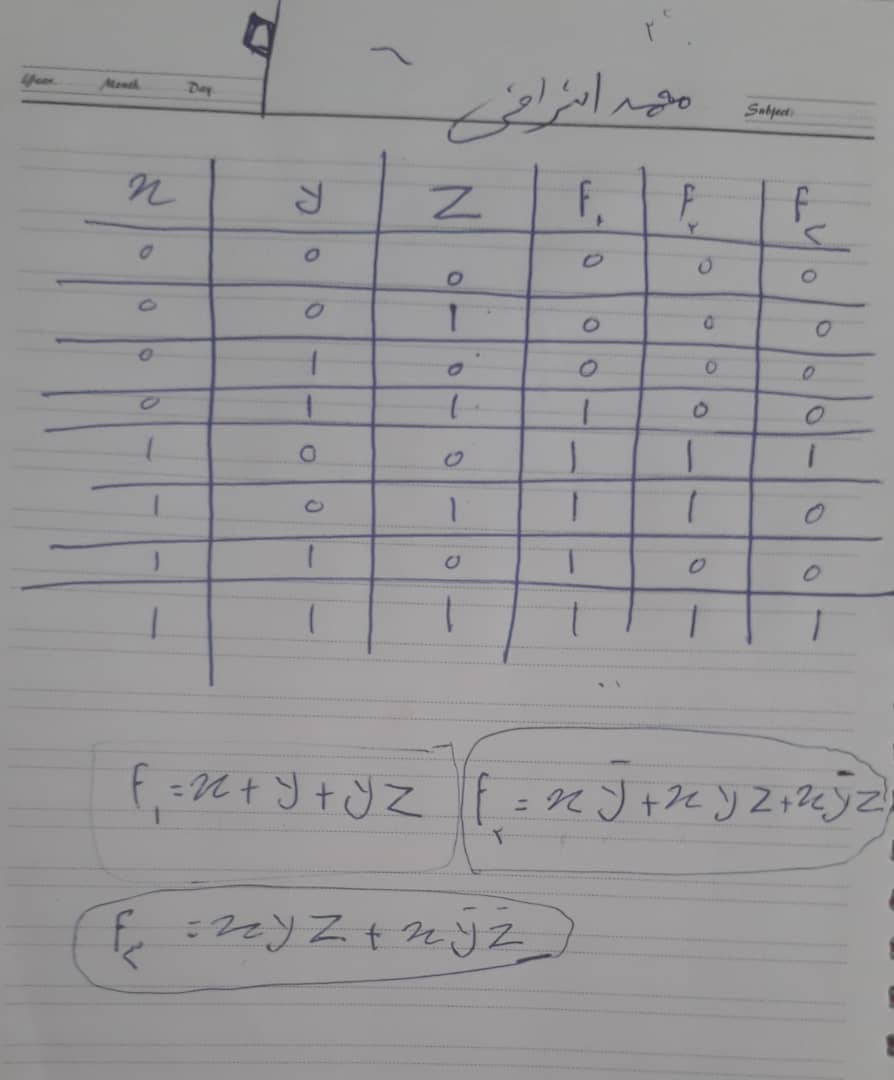 Year. Month. Day.
Subject:
x y z F₁ F₂ F₃
0 0 0 0 0 0
0 0 1 0 0 0
0 1 0 0 0 0
0 1 1 1 0 0
1 0 0 1 1 1
1 0 1 1 1 0
1 1 0 1 0 0
1 1 1 1 1 1
F₁ = x + y + yz
F۲ = xȳ + xyz + xȳz
F₃ = xyz + xȳz̄